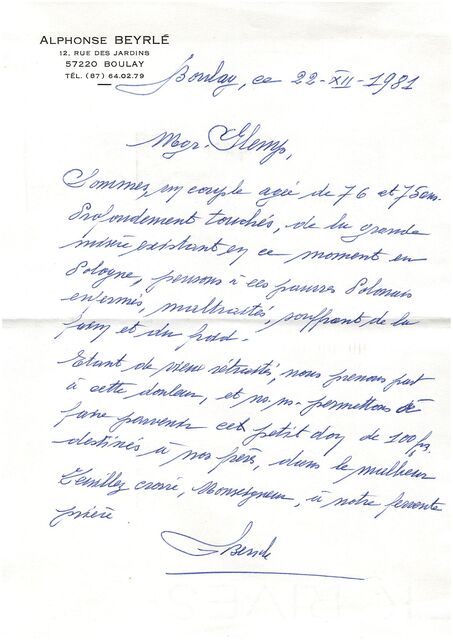 ALPHONSE BEYRLÉ
12, RUE DES JARDINS
57220 BOULAY
TÉL. (87) 64.02.79
Boulay, ce 22-XII-1981
Mgr. Glemp,
Sommes, un couple agée de 76 et 75 ans.
Profondement touchés, de la grande
misère existant en ce moment en
Pologne, pensons à ces pauvres Polonais
enfermés, maltraités, souffrant de la
faim et du froid.
Etant de vieux rétraités, nous prenons part
à cette douleur, et ns. ns. permettons de
faire parvenir cet petit don de 100 frs.
destinés à nos frères, dans le malheur
Veuillez croire, Monseigneur, à notre fervente
prière